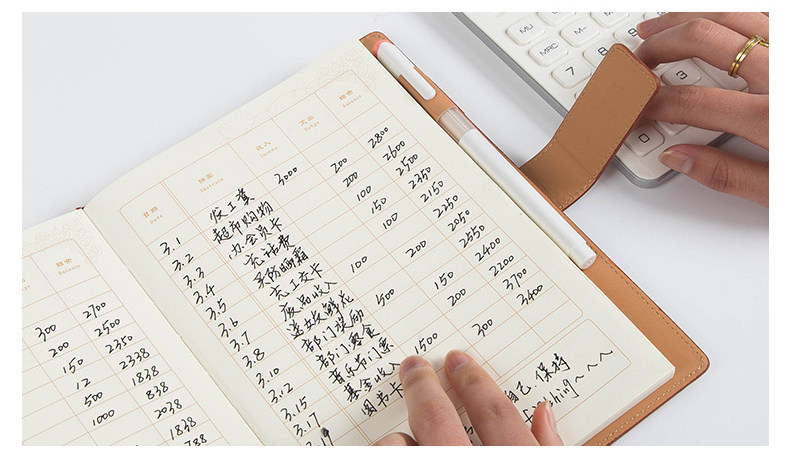 结余
Balance
300 2700
200 2500
150 2350
12 2338
500 1838
1000 838
2038
1838
788
日期 摘要 收入 支出 结余
Date Abstract Income Budget Balance
3.1 发工资 3000
3.2 超市购物 200 2800
3.3 办会员卡 200 2600
3.4 充话费 100 2500
3.5 买防晒霜 150 2350
3.6 充公交卡 100 2150
3.7 废品收入 100 2250
3.8 送女友鲜花 200 2050
3.10 部门奖励 500 2550
3.12 部门零食 150 2400
3.15 音乐节门票 200 2200
3.17 基金收入 1500 3700
3.19 图书卡 300 3400
自己.保持
MU M-
MRC 8 9
7 3
0